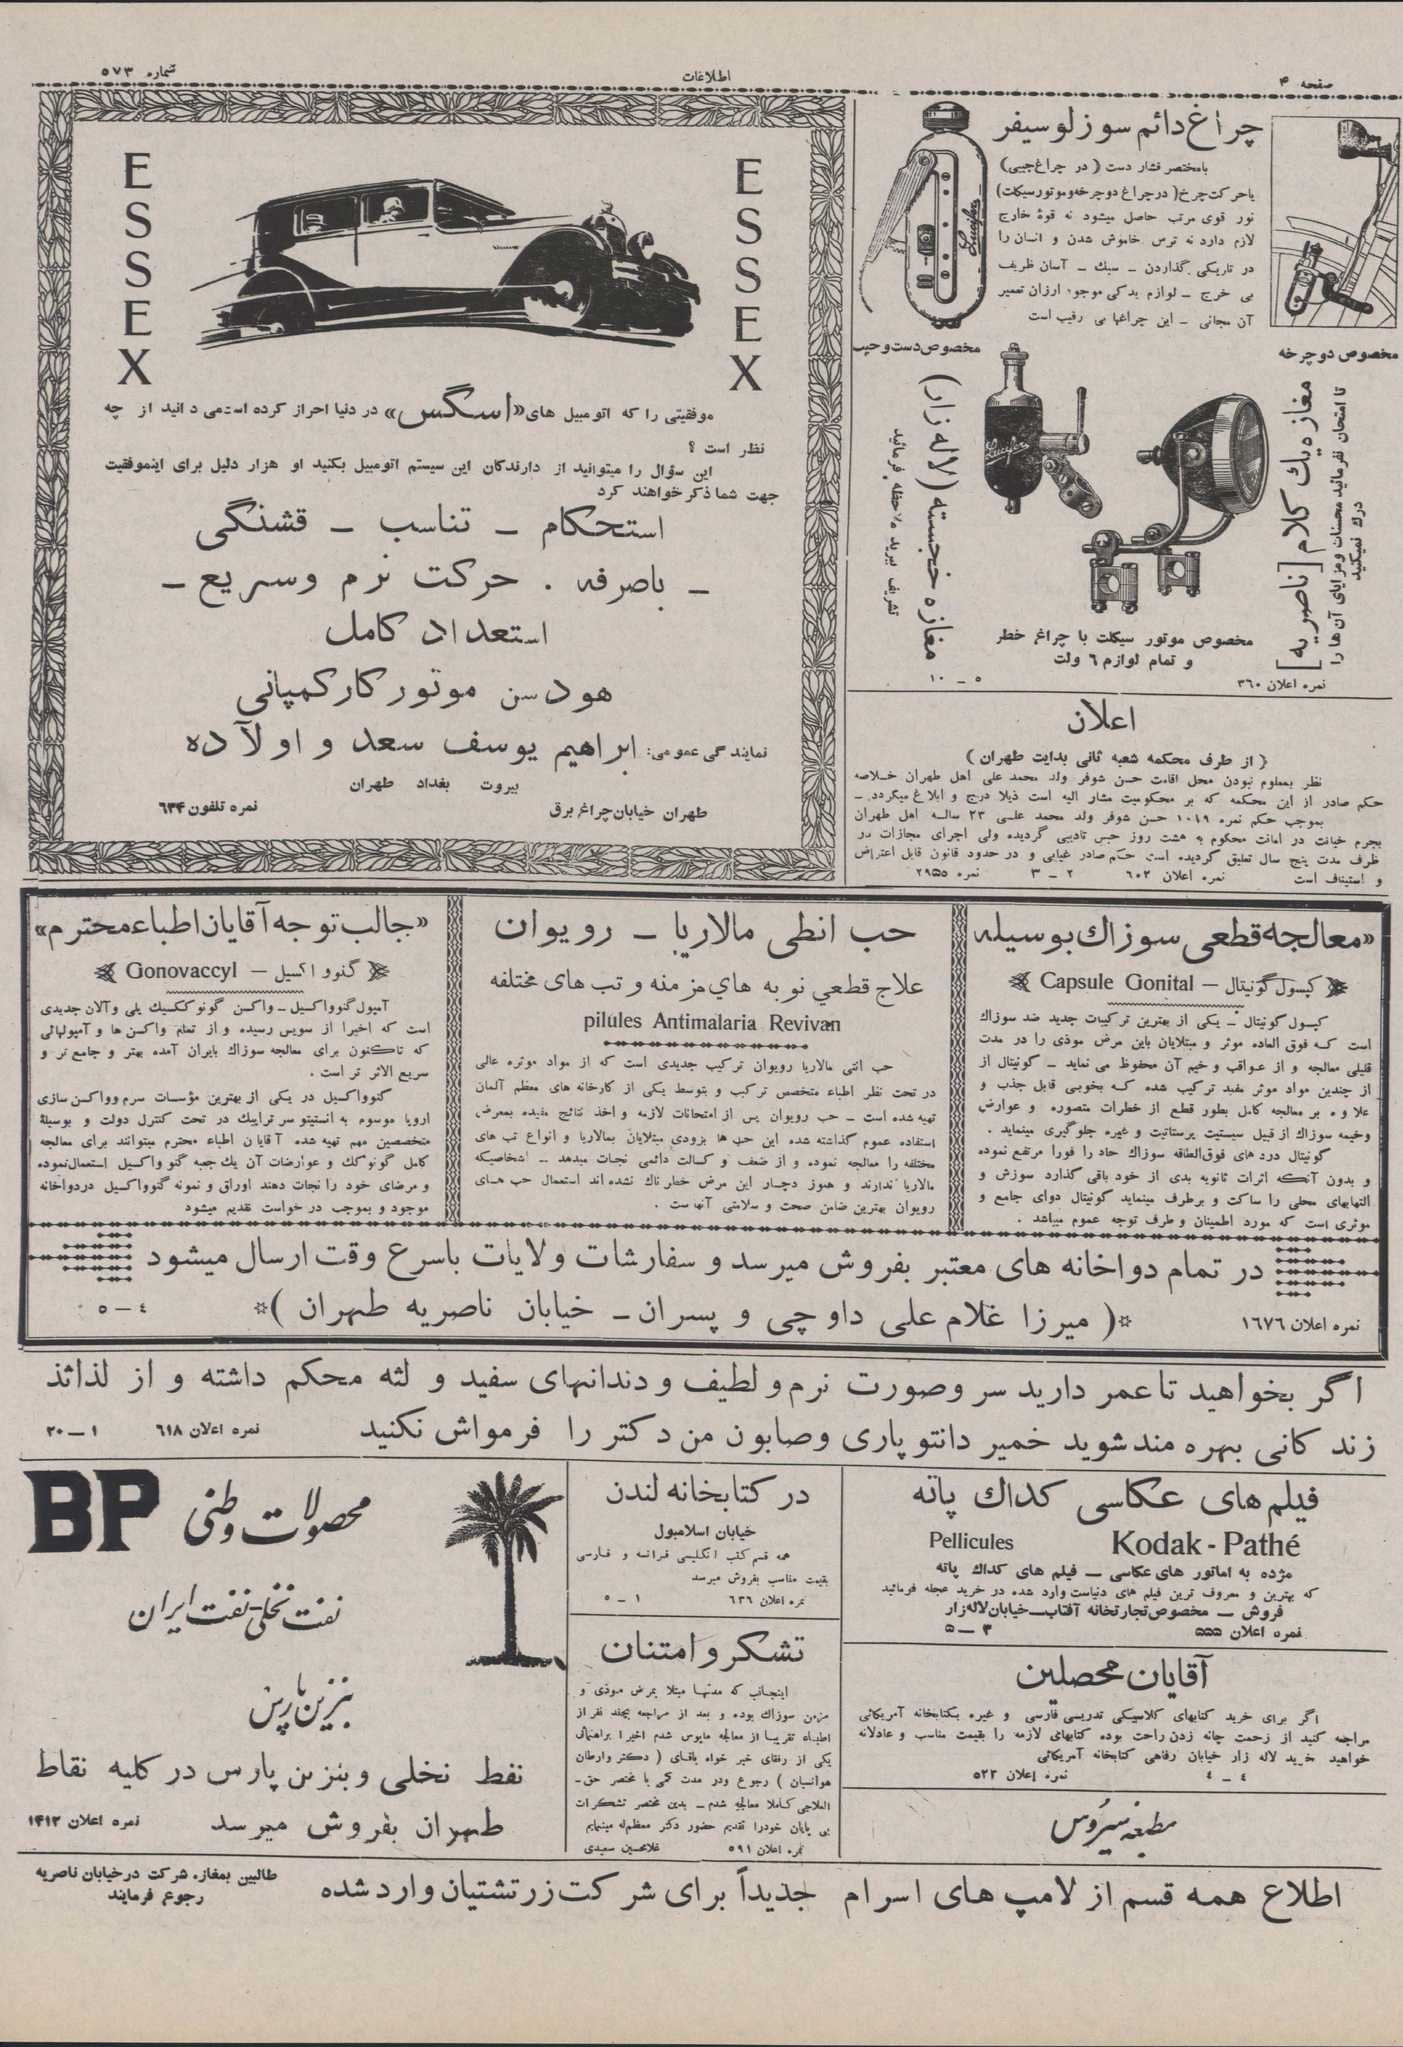 صفحه ۴
اطلاعات
شماره ۵۷۳
چراغ دائم سوز لوسیفر
بامختصر فشار دست (در چراغ جیبی)
یا حرکت چرخ (در چراغ دوچرخه و موتورسیکلت)
نور قوی مرتب حاصل میشود نه قوهٔ خارج
لازم دارد نه ترس خاموش شدن و انسان را
در تاریکی گذاردن ــ سبك ــ آسان ظریف
بی خرج ــ لوازم یدکی موجود ارزان تعمیر
آن مجانی ــ این چراغها بی رقیب است
Lucifer
مخصوص دوچرخه
مخصوص دست و جیب
Lucifer
تا امتحان نفرمائید محسنات و مزایای آن ها را
درك نمیکنید
مغازه یك کلام [ناصریه]
مغازه خجسته (لاله زار)
تشریف ببرید ملاحظه فرمائید
مخصوص موتور سیکلت با چراغ خطر
و تمام لوازم ٦ ولت
نمره اعلان ۳۶۰
۵ ــ ۱۰
اعلان
( از طرف محکمه شعبه ثانی بدایت طهران )
نظر بمعلوم نبودن محل اقامت حسن شوفر ولد محمد علی اهل طهران خلاصه
حکم صادر از این محکمه که بر محکومیت مشار الیه است ذیلا درج و ابلاغ میگردد ــ
بموجب حکم نمره ۱۰۴۹ حسن شوفر ولد محمد علی ۲۳ ساله اهل طهران
بجرم خیانت در امانت محکوم به هشت روز حبس تادیبی گردیده ولی اجرای مجازات در
ظرف مدت پنج سال تعلیق گردیده است حکم صادر غیابی و در حدود قانون قابل اعتراض
و استیناف است نمره اعلان ۶۰۲ ۲ ــ ۳ نمره ۲۹۵۵
ESSEX
ESSEX
موفقیتی را که اتومبیل های «اسگس» در دنیا احراز کرده است می دانید از چه
نظر است ؟
این سؤال را میتوانید از دارندگان این سیستم اتومبیل بکنید او هزار دلیل برای اینموفقیت
جهت شما ذکر خواهند کرد
استحکام ــ تناسب ــ قشنگی
ــ باصرفه . حرکت نرم وسریع ــ
استعداد کامل
هودسن موتورکارکمپانی
نمایندگی عمومی: ابراهیم یوسف سعد و اولاده
بیروت بغداد طهران
طهران خیابان چراغ برق
نمره تلفون ۶۳۴
«معالجه قطعی سوزاك بوسیله
کپسول گونیتال ــ Capsule Gonital
کپسول گونیتال ــ یکی از بهترین ترکیبات جدید ضد سوزاك
است که فوق العاده موثر و مبتلایان باین مرض موذی را در مدت
قلیلی معالجه و از عواقب وخیم آن محفوظ می نماید ــ گونیتال از
از چندین مواد موثر مفید ترکیب شده که بخوبی قابل جذب و
علاوه بر معالجه کامل بطور قطع از خطرات متصوره و عوارض
وخیمه سوزاك از قبیل سیستیت پرستاتیت و غیره جلوگیری مینماید .
گونیتال درد های فوق الطاقه سوزاك حاد را فورا مرتفع نموده
و بدون آنکه اثرات ثانویه بدی از خود باقی گذارد سوزش و
التهابهای محلی را ساکت و برطرف مینماید گونیتال دوای جامع و
موثری است که مورد اطمینان و طرف توجه عموم میباشد .
حب انطی مالاریا ــ رویوان
علاج قطعی نوبه های مزمنه و تب های مختلفه
pilules Antimalaria Revivan
حب انتی مالاریا رویوان ترکیب جدیدی است که از مواد موثره عالی
در تحت نظر اطباء متخصص ترکیب و بتوسط یکی از کارخانه های معظم آلمان
تهیه شده است ــ حب رویوان پس از امتحانات لازمه و اخذ نتائج مفیده بمعرض
استفاده عموم گذاشته شده این حب ها بزودی مبتلایان بمالاریا و انواع تب های
مختلفه را معالجه نموده و از ضعف و کسالت دائمی نجات میدهد ــ اشخاصیکه
مالاریا ندارند و هنوز دچار این مرض خطرناك نشده اند استعمال حب های
رویوان بهترین ضامن صحت و سلامتی آنهاست .
«جالب توجه آقایان اطباء محترم»
گنوواکسیل ــ Gonovaccyl
آمپول گنوواکسیل ــ واکسن گونوککسیك پلی والان جدیدی
است که اخیرا از سویس رسیده و از تمام واکسن ها و آمپولهائی
که تاکنون برای معالجه سوزاك بایران آمده بهتر و جامع تر و
سریع الاثر تر است .
گنوواکسیل در یکی از بهترین مؤسسات سرم وواکسن سازی
اروپا موسوم به انستیتو سرتراپیك در تحت کنترل دولت و بوسیلهٔ
متخصصین مهم تهیه شده آقایان اطباء محترم میتوانند برای معالجه
کامل گونوکك و عوارضات آن یك جعبه گنوواکسیل استعمال نموده
و مرضای خود را نجات دهند اوراق و نمونه گنوواکسیل در دواخانه
موجود و بموجب درخواست تقدیم میشود
در تمام دواخانه های معتبر بفروش میرسد و سفارشات ولایات باسرع وقت ارسال میشود
نمره اعلان ۱۶۷۶
( میرزا غلام علی داوچی و پسران ــ خیابان ناصریه طهران )
۴ ــ ۵
اگر بخواهید تا عمر دارید سر وصورت نرم و لطیف و دندانهای سفید و لثه محکم داشته و از لذائذ
زندکانی بهره مند شوید خمیر دانتو پاری وصابون من دکتر را فرمواش نکنید
نمره اعلان ۶۱۸
۱ ــ ۲۰
فیلم های عکاسی کداك پاته
Kodak - Pathé
Pellicules
مژده به اماتور های عکاسی ــ فیلم های کداك پاته
که بهترین و معروف ترین فیلم های دنیاست وارد شده در خرید عجله فرمائید
فروش ــ مخصوص تجارتخانه آفتاب ــ خیابان لاله زار
نمره اعلان ۵۵۵
۳ ــ ۵
آقایان محصلین
اگر برای خرید کتابهای کلاسیکی تدریسی فارسی و غیره بکتابخانه آمریکائی
مراجعه کنید از زحمت چانه زدن راحت بوده کتابهای لازمه را بقیمت مناسب و عادلانه
خواهید خرید لاله زار خیابان رفاهی کتابخانه آمریکائی
۴ ــ ۴
نمره اعلان ۵۲۳
مطبعه سیروس
در کتابخانه لندن
خیابان اسلامبول
همه قسم کتب انگلیسی فرانسه و فارسی
بقیمت مناسب بفروش میرسد
نمره اعلان ۶۳۶
۱ ــ ۵
تشکر و امتنان
اینجانب که مدتها مبتلا بمرض موذی و
مزمن سوزاك بوده و بعد از مراجعه بچند نفر از
اطباء تقریبا از معالجه مایوس شدم اخیرا براهنمائی
یکی از رفقای خیر خواه باقای ( دکتر وارطان
هوانسیان ) رجوع ودر مدت کمی با مختصر حق ــ
العلاجی کاملا معالجه شدم ــ بدین مختصر تشکرات
بی پایان خودرا تقدیم حضور دکتر معظم له مینمایم
نمره اعلان ۵۹۱
غلامحسین سعیدی
BP
محصولات وطنی
نفت نخلی - نفت ایران
بنزین پارس
نفط نخلی و بنزین پارس در کلیه نقاط
طهران بفروش میرسد
نمره اعلان ۱۴۱۲
اطلاع همه قسم از لامپ های اسرام جدیداً برای شرکت زرتشتیان وارد شده
طالبین بمغازه شرکت درخیابان ناصریه
رجوع فرمایند